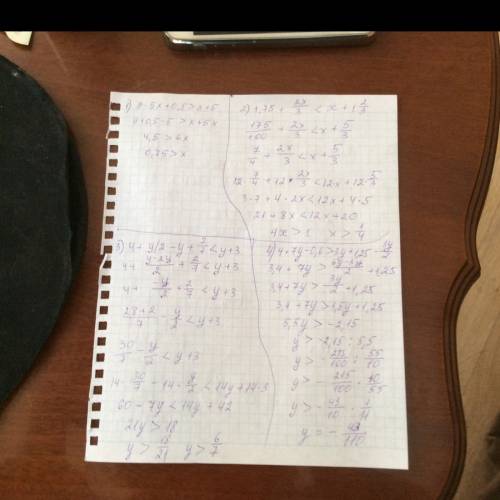 1) 9 - 5x + 0,5 > x + 5
9 + 0,5 - 5 > x + 5x
4,5 > 6x
0,75 > x
2) 1,75 + 2x/3 < x + 1 2/3
175/100 + 2x/3 < x + 5/3
7/4 + 2x/3 < x + 5/3
12 · 7/4 + 12 · 2x/3 < 12x + 12 · 5/3
3 · 7 + 4 · 2x < 12x + 4 · 5
21 + 8x < 12x + 20
4x > 1 x > 1/4
3) 4 + y/2 - y + 2/7 < y + 3
4 + y-2y/2 + 2/7 < y + 3
4 + -y/2 + 2/7 < y + 3
28+2/7 - y/2 < y + 3
30/7 - y/2 < y + 3
14 · 30/7 - 14 · y/2 < 14y + 14 · 3
60 - 7y < 14y + 42
21y > 18
y > 18/21 y > 6/7
3,4 + 7y > 3y/2 + 1,25
3,4 + 7y > 1,5y + 1,25
5,5y > -2,15
y > -2,15 : 5,5
y > - 215/100 : 55/10
y > - 215/100 · 10/55
y > - 43/10 · 1/11
y = - 43/110